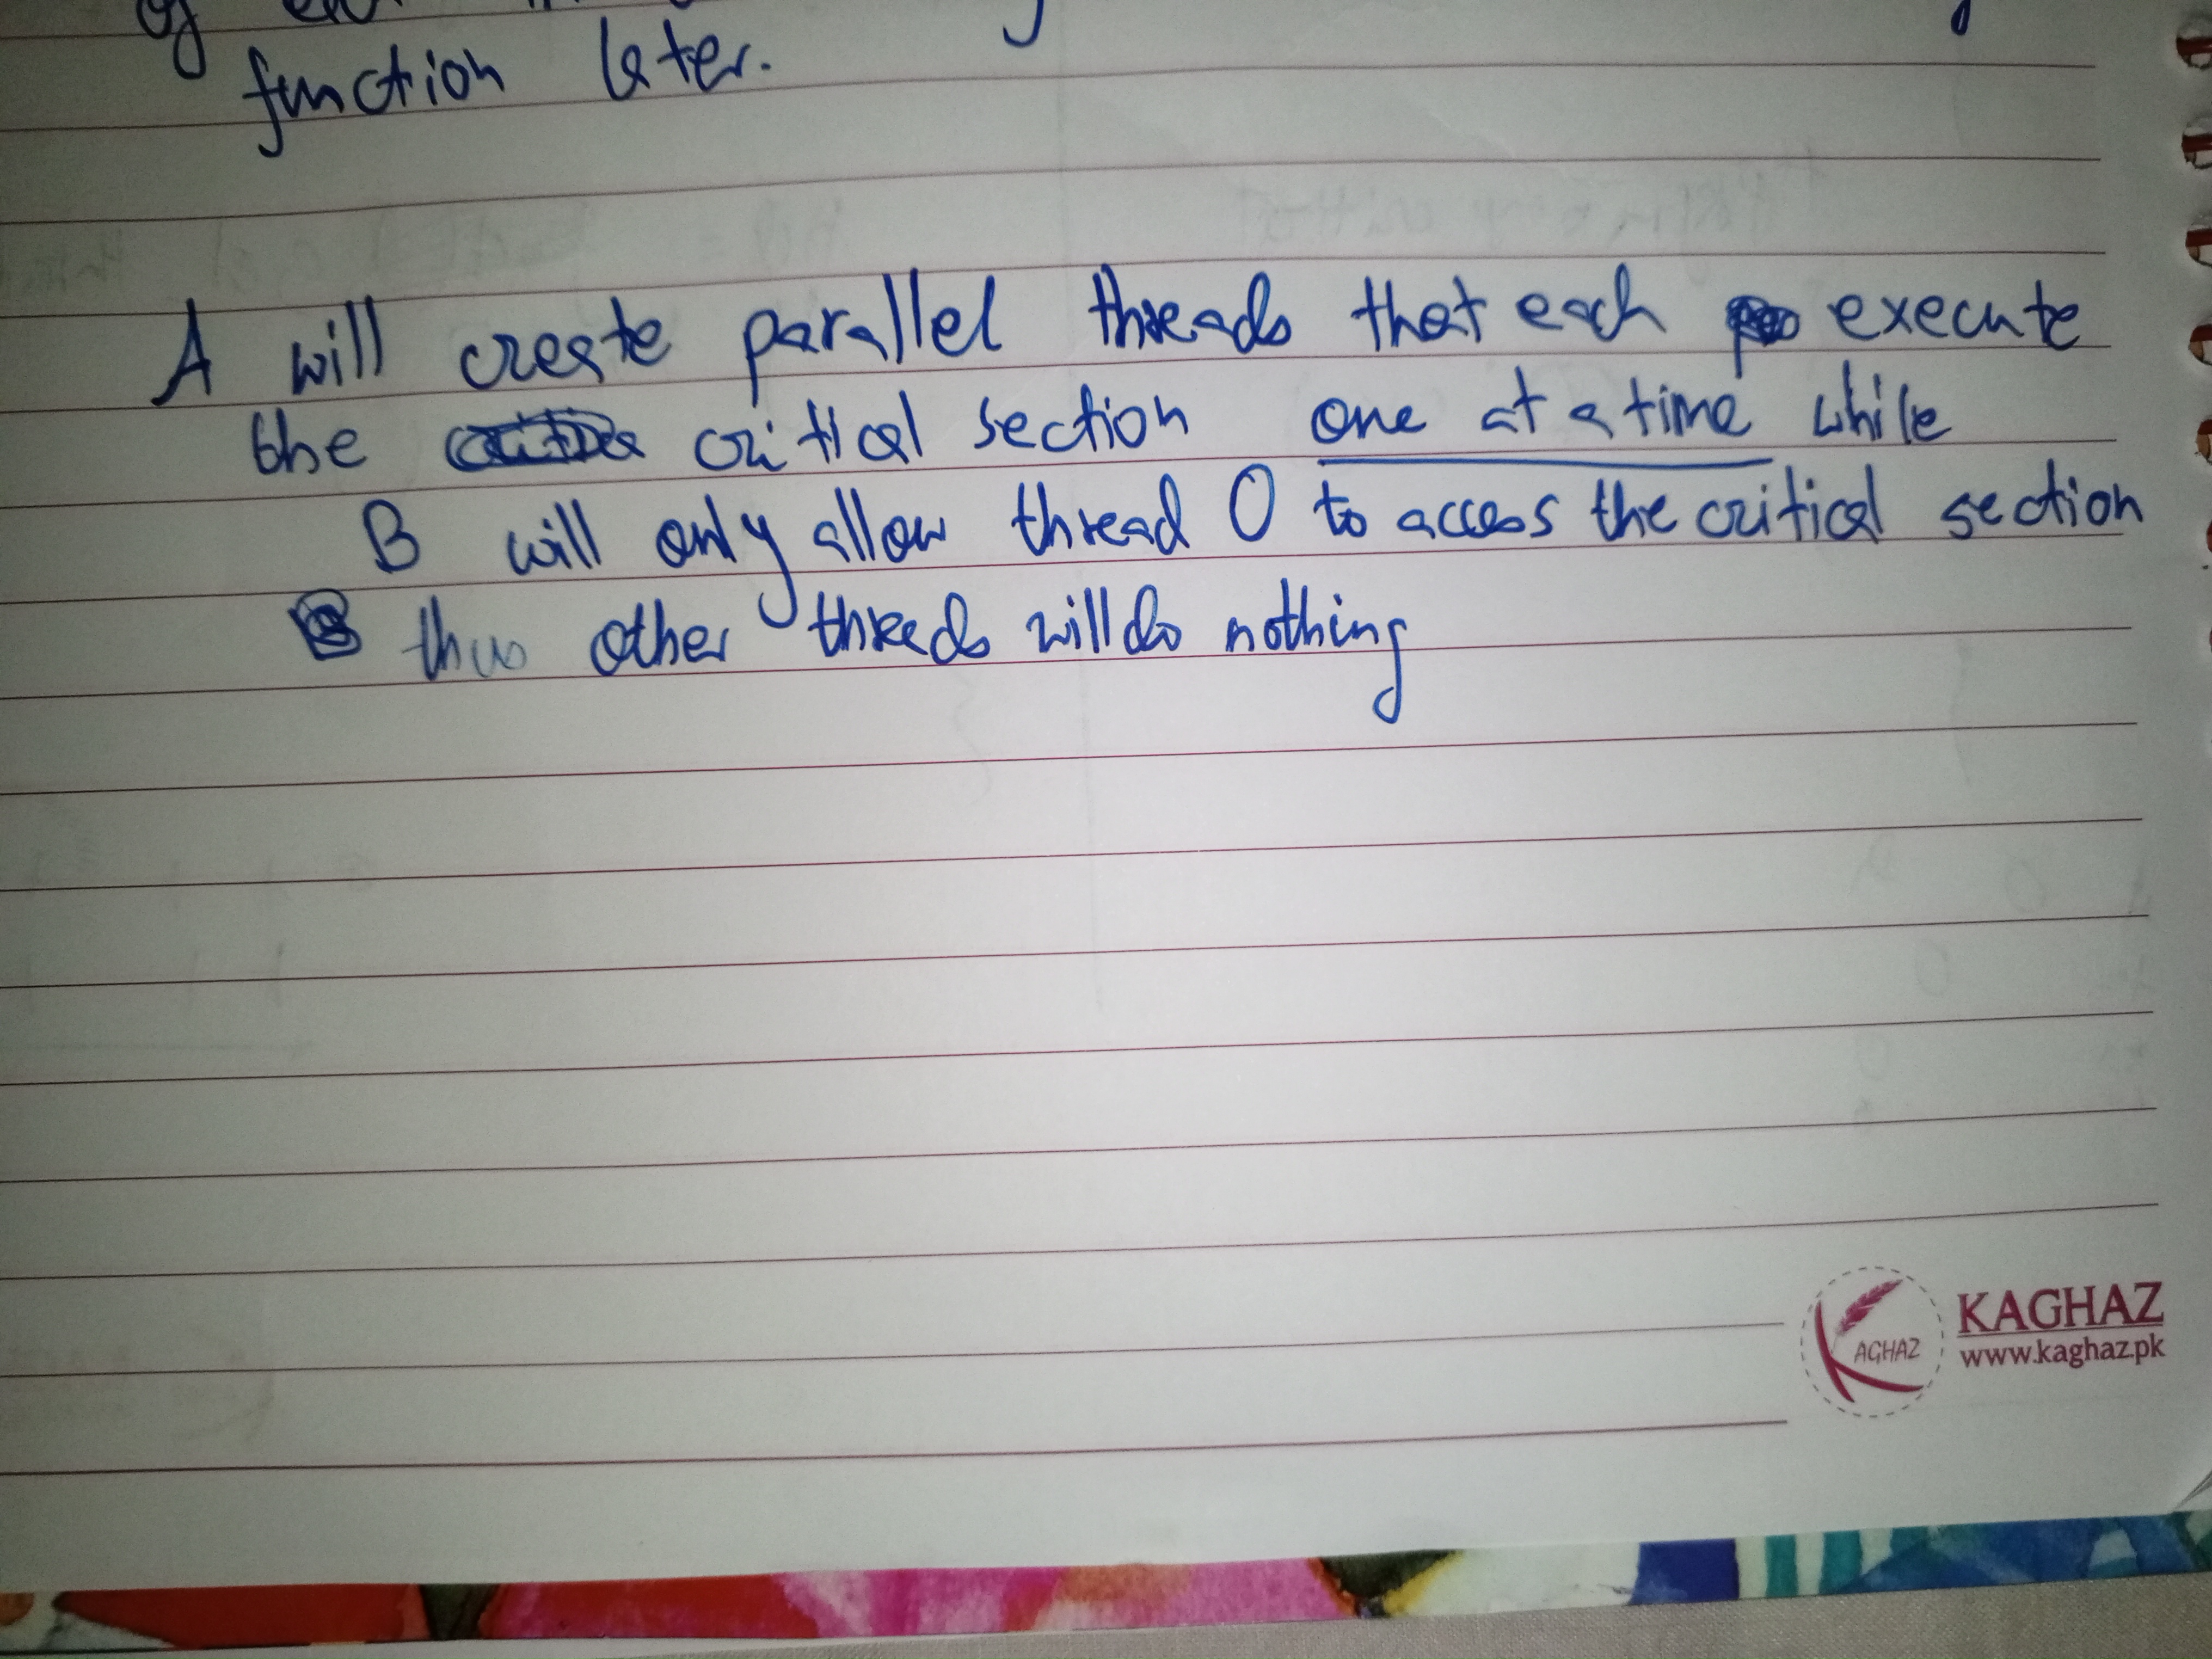 of
function later.
A will create parallel threads that each execute
the critical section one at a time while
B will only allow thread 0 to access the critical section
thus other threads will do nothing
AGHAZ
KAGHAZ
www.kaghaz.pk